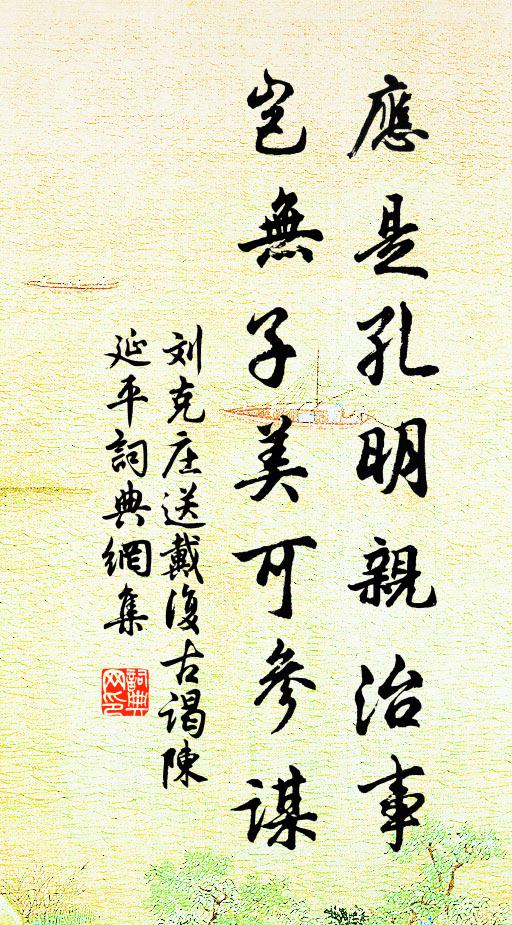 應是孔明親治事
豈無子美可參謀
刘克庄送戴復古謁陳
延平詞典網集
詞典
网印